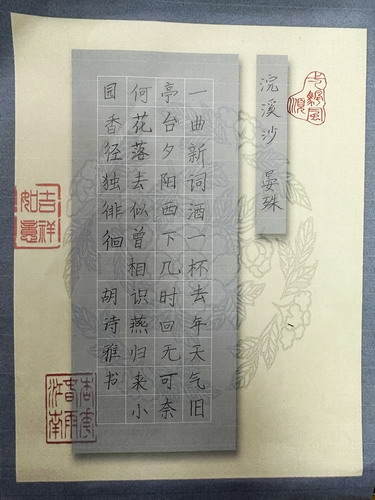 浣溪沙 晏殊
一曲新词酒一杯去年天气旧
亭台夕阳西下几时回无可奈
何花落去似曾相识燕归来小
园香径独徘徊 胡诗雅书
吉祥
如意